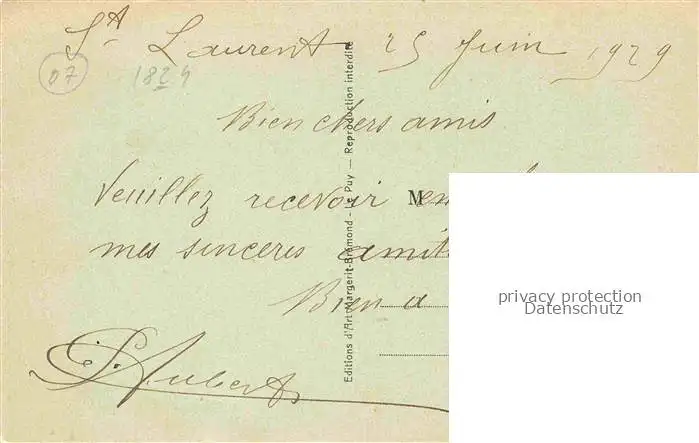 St Laurent 25 Juin 1929
07
1824
Bien chers amis
Veuillez recevoir en
mes sinceres amit
Bien a
P. Aubert
M
Editions d'Art Margerit-Brémond - Le Puy — Reproduction interdite
privacy protection
Datenschutz